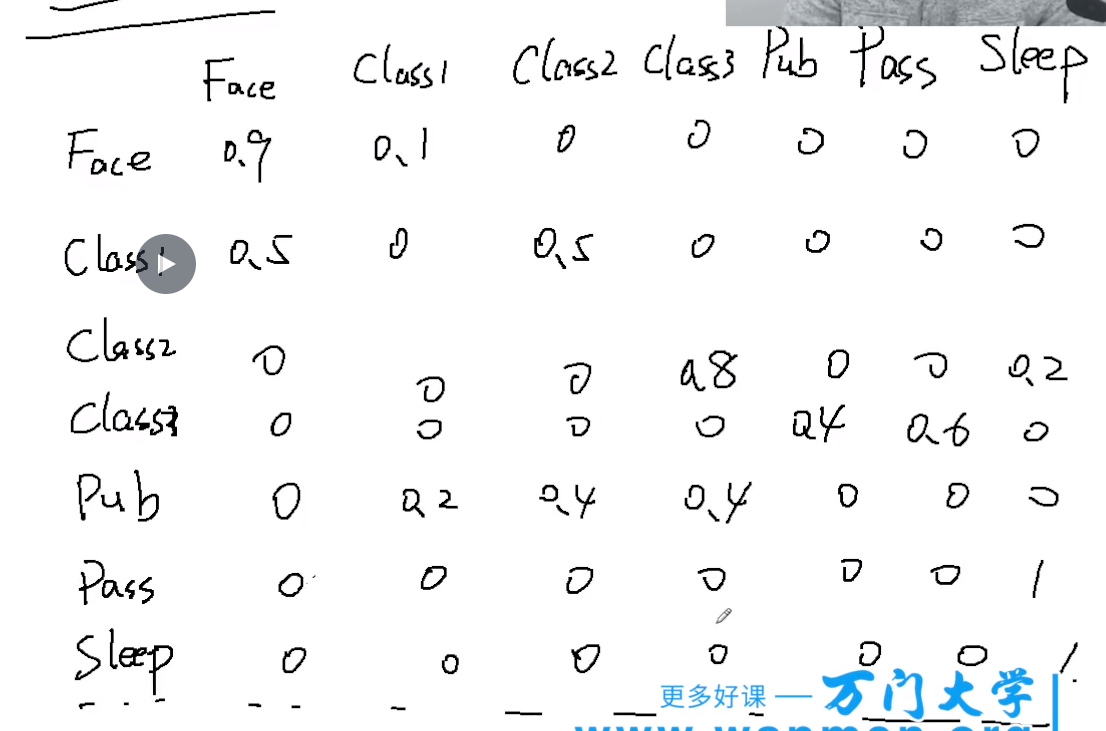 Face Class1 Class2 Class3 Pub Pass Sleep
Face 0.9 0.1 0 0 0 0 0
Class1 0.5 0 0.5 0 0 0 0
Class2 0 0 0 0.8 0 0 0.2
Class3 0 0 0 0 0.4 0.6 0
Pub 0 0.2 0.4 0.4 0 0 0
Pass 0 0 0 0 0 0 1
Sleep 0 0 0 0 0 0 1
更多好课 — 万门大学
www.wanmen.org